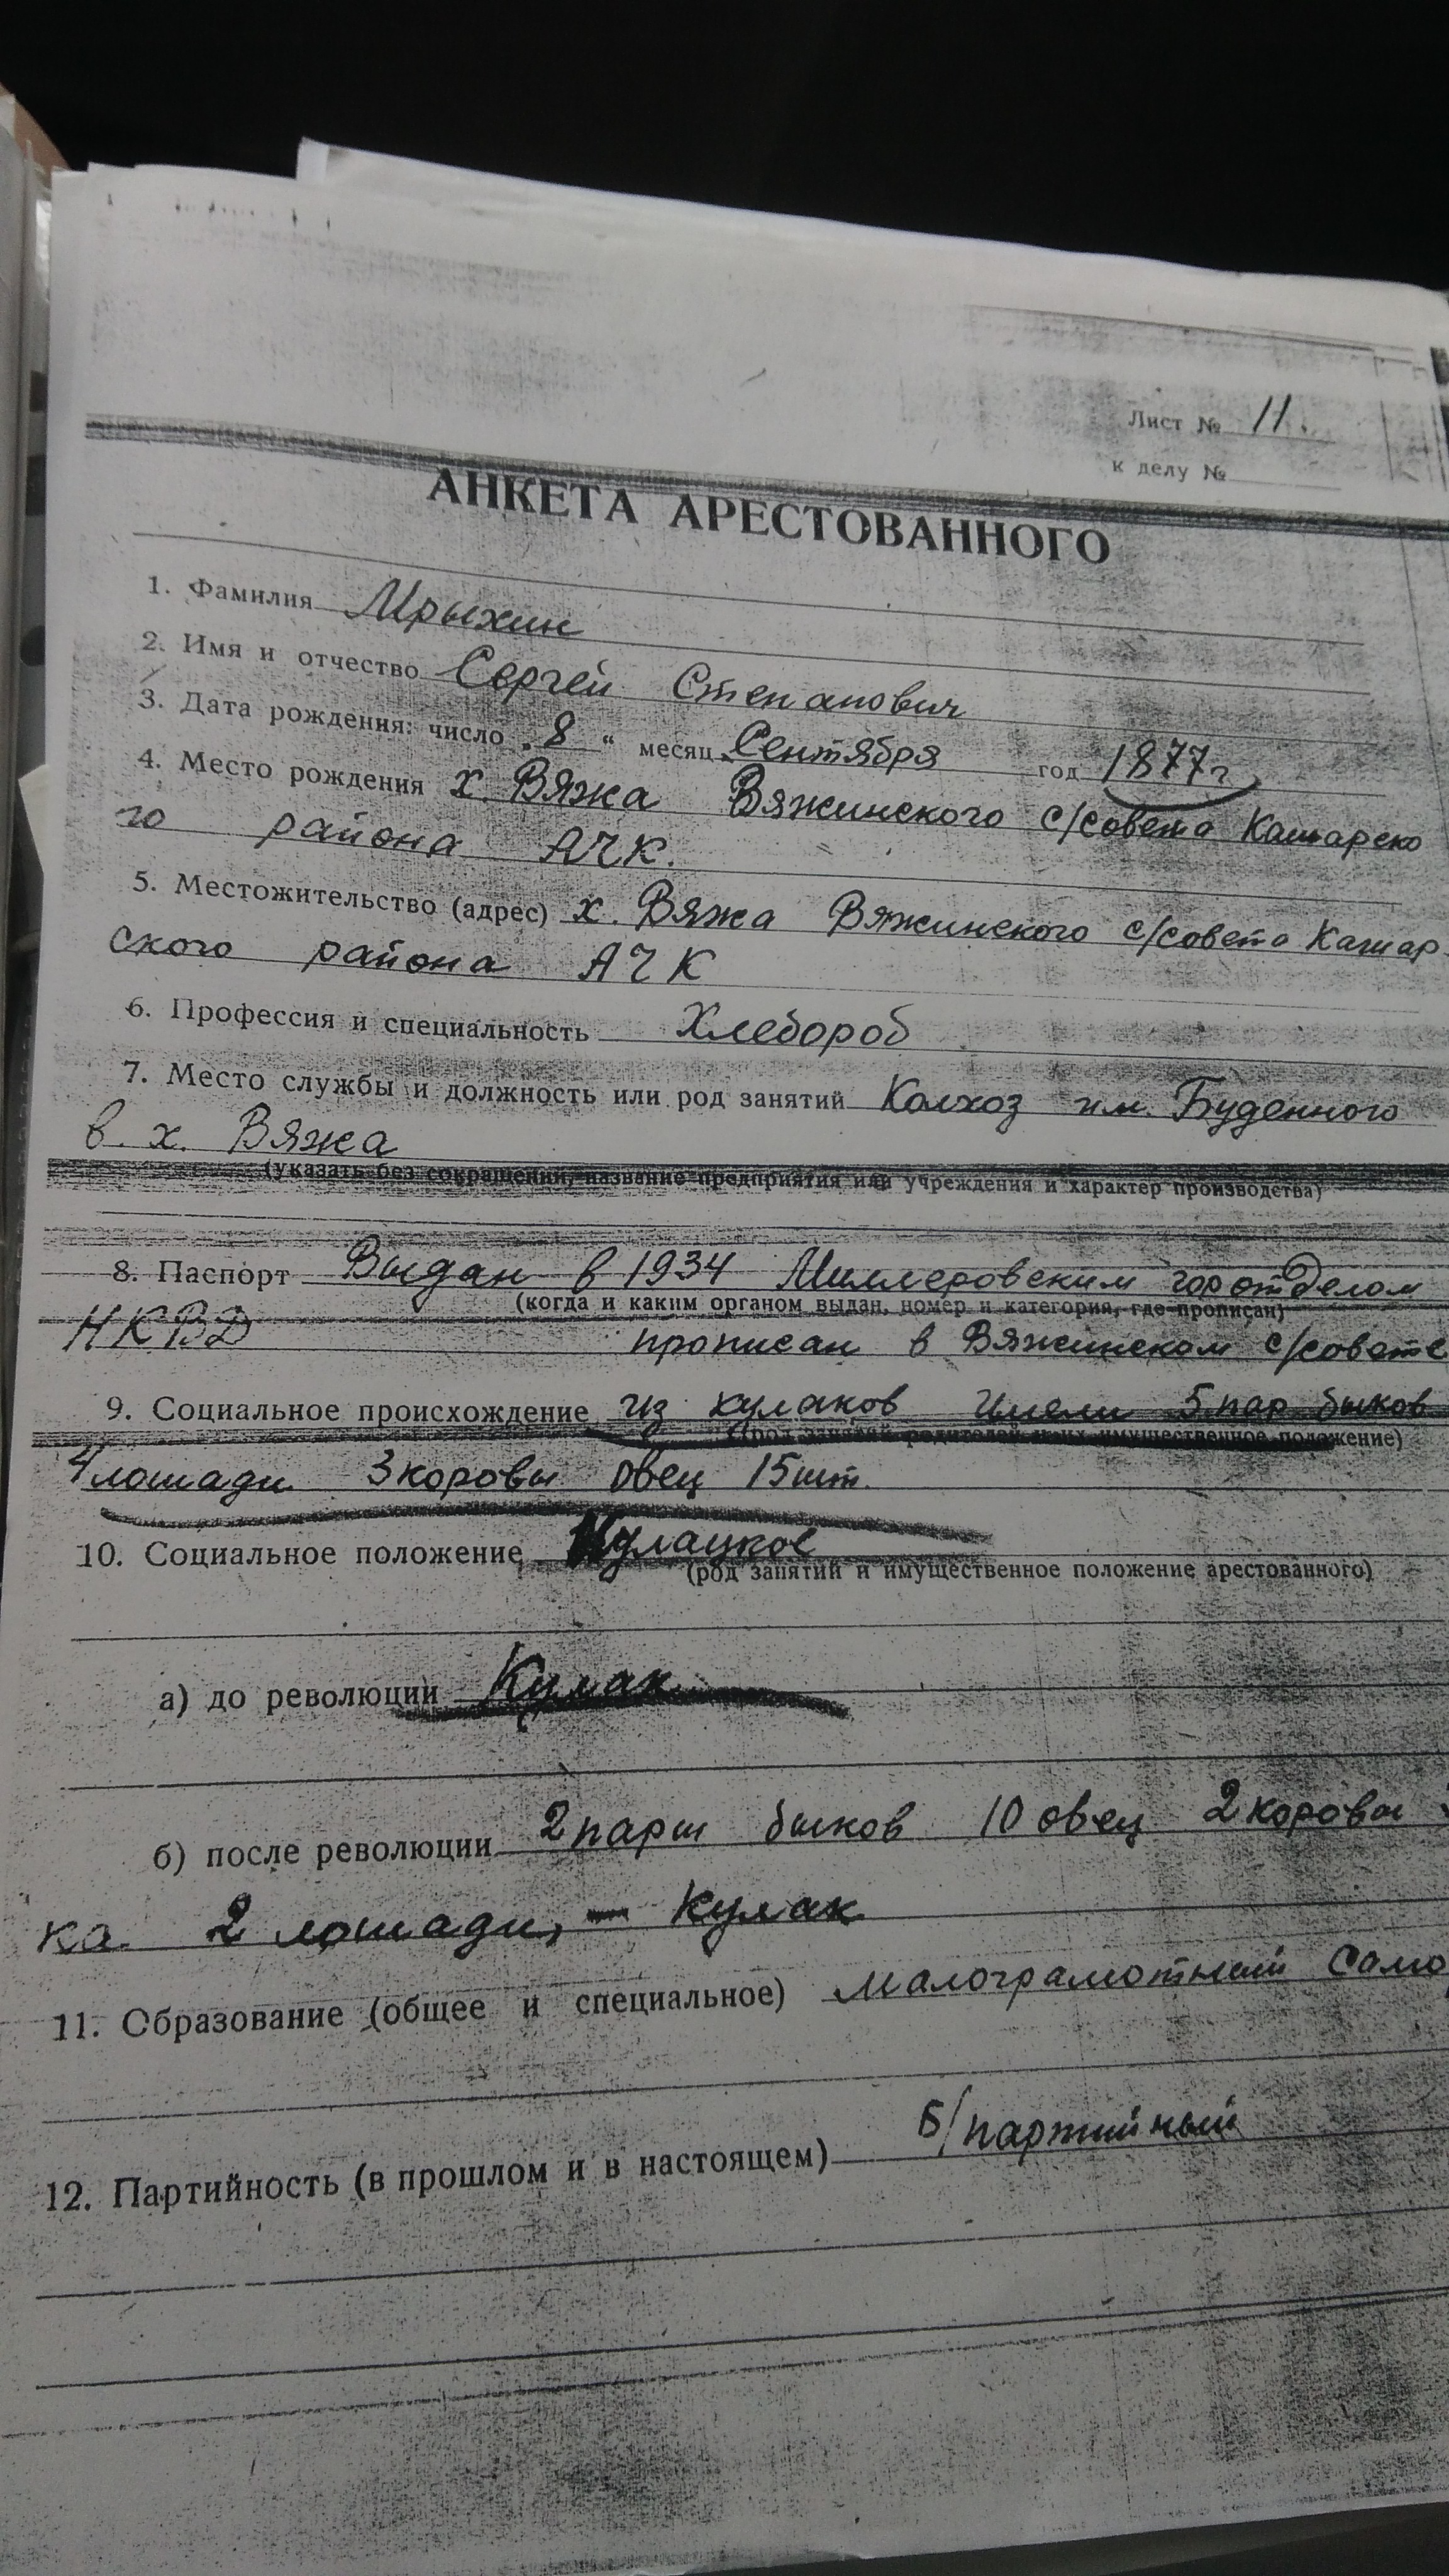 Лист № 11.
к делу №
АНКЕТА АРЕСТОВАННОГО
1. Фамилия Мрыхин
2. Имя и отчество Сергей Степанович
3. Дата рождения: число „8“ месяц Сентября год 1877г
4. Место рождения х. Вяжа Вяжинского с/совета Кашарско
го района АЧК.
5. Местожительство (адрес) х. Вяжа Вяжинского с/совета Кашар-
ского района АЧК
6. Профессия и специальность Хлебороб
7. Место службы и должность или род занятий Колхоз им. Буденного
в х. Вяжа
(указать без сокращений, название предприятия или учреждения и характер производства)
8. Паспорт Выдан в 1934 Миллеровским горотделом
(когда и каким органом выдан, номер и категория, где прописан)
НКВД прописан в Вяжинском с/совете
9. Социальное происхождение из кулаков имели 5 пар быков
(род занятий родителей и их имущественное положение)
4 лошади 3 коровы овец 15 шт.
10. Социальное положение Кулацкое
(род занятий и имущественное положение арестованного)
а) до революции Кулак
б) после революции 2 пары быков 10 овец 2 коровы
ка. 2 лошади, – Кулак
11. Образование (общее и специальное) малограмотный само
12. Партийность (в прошлом и в настоящем) б/партийный